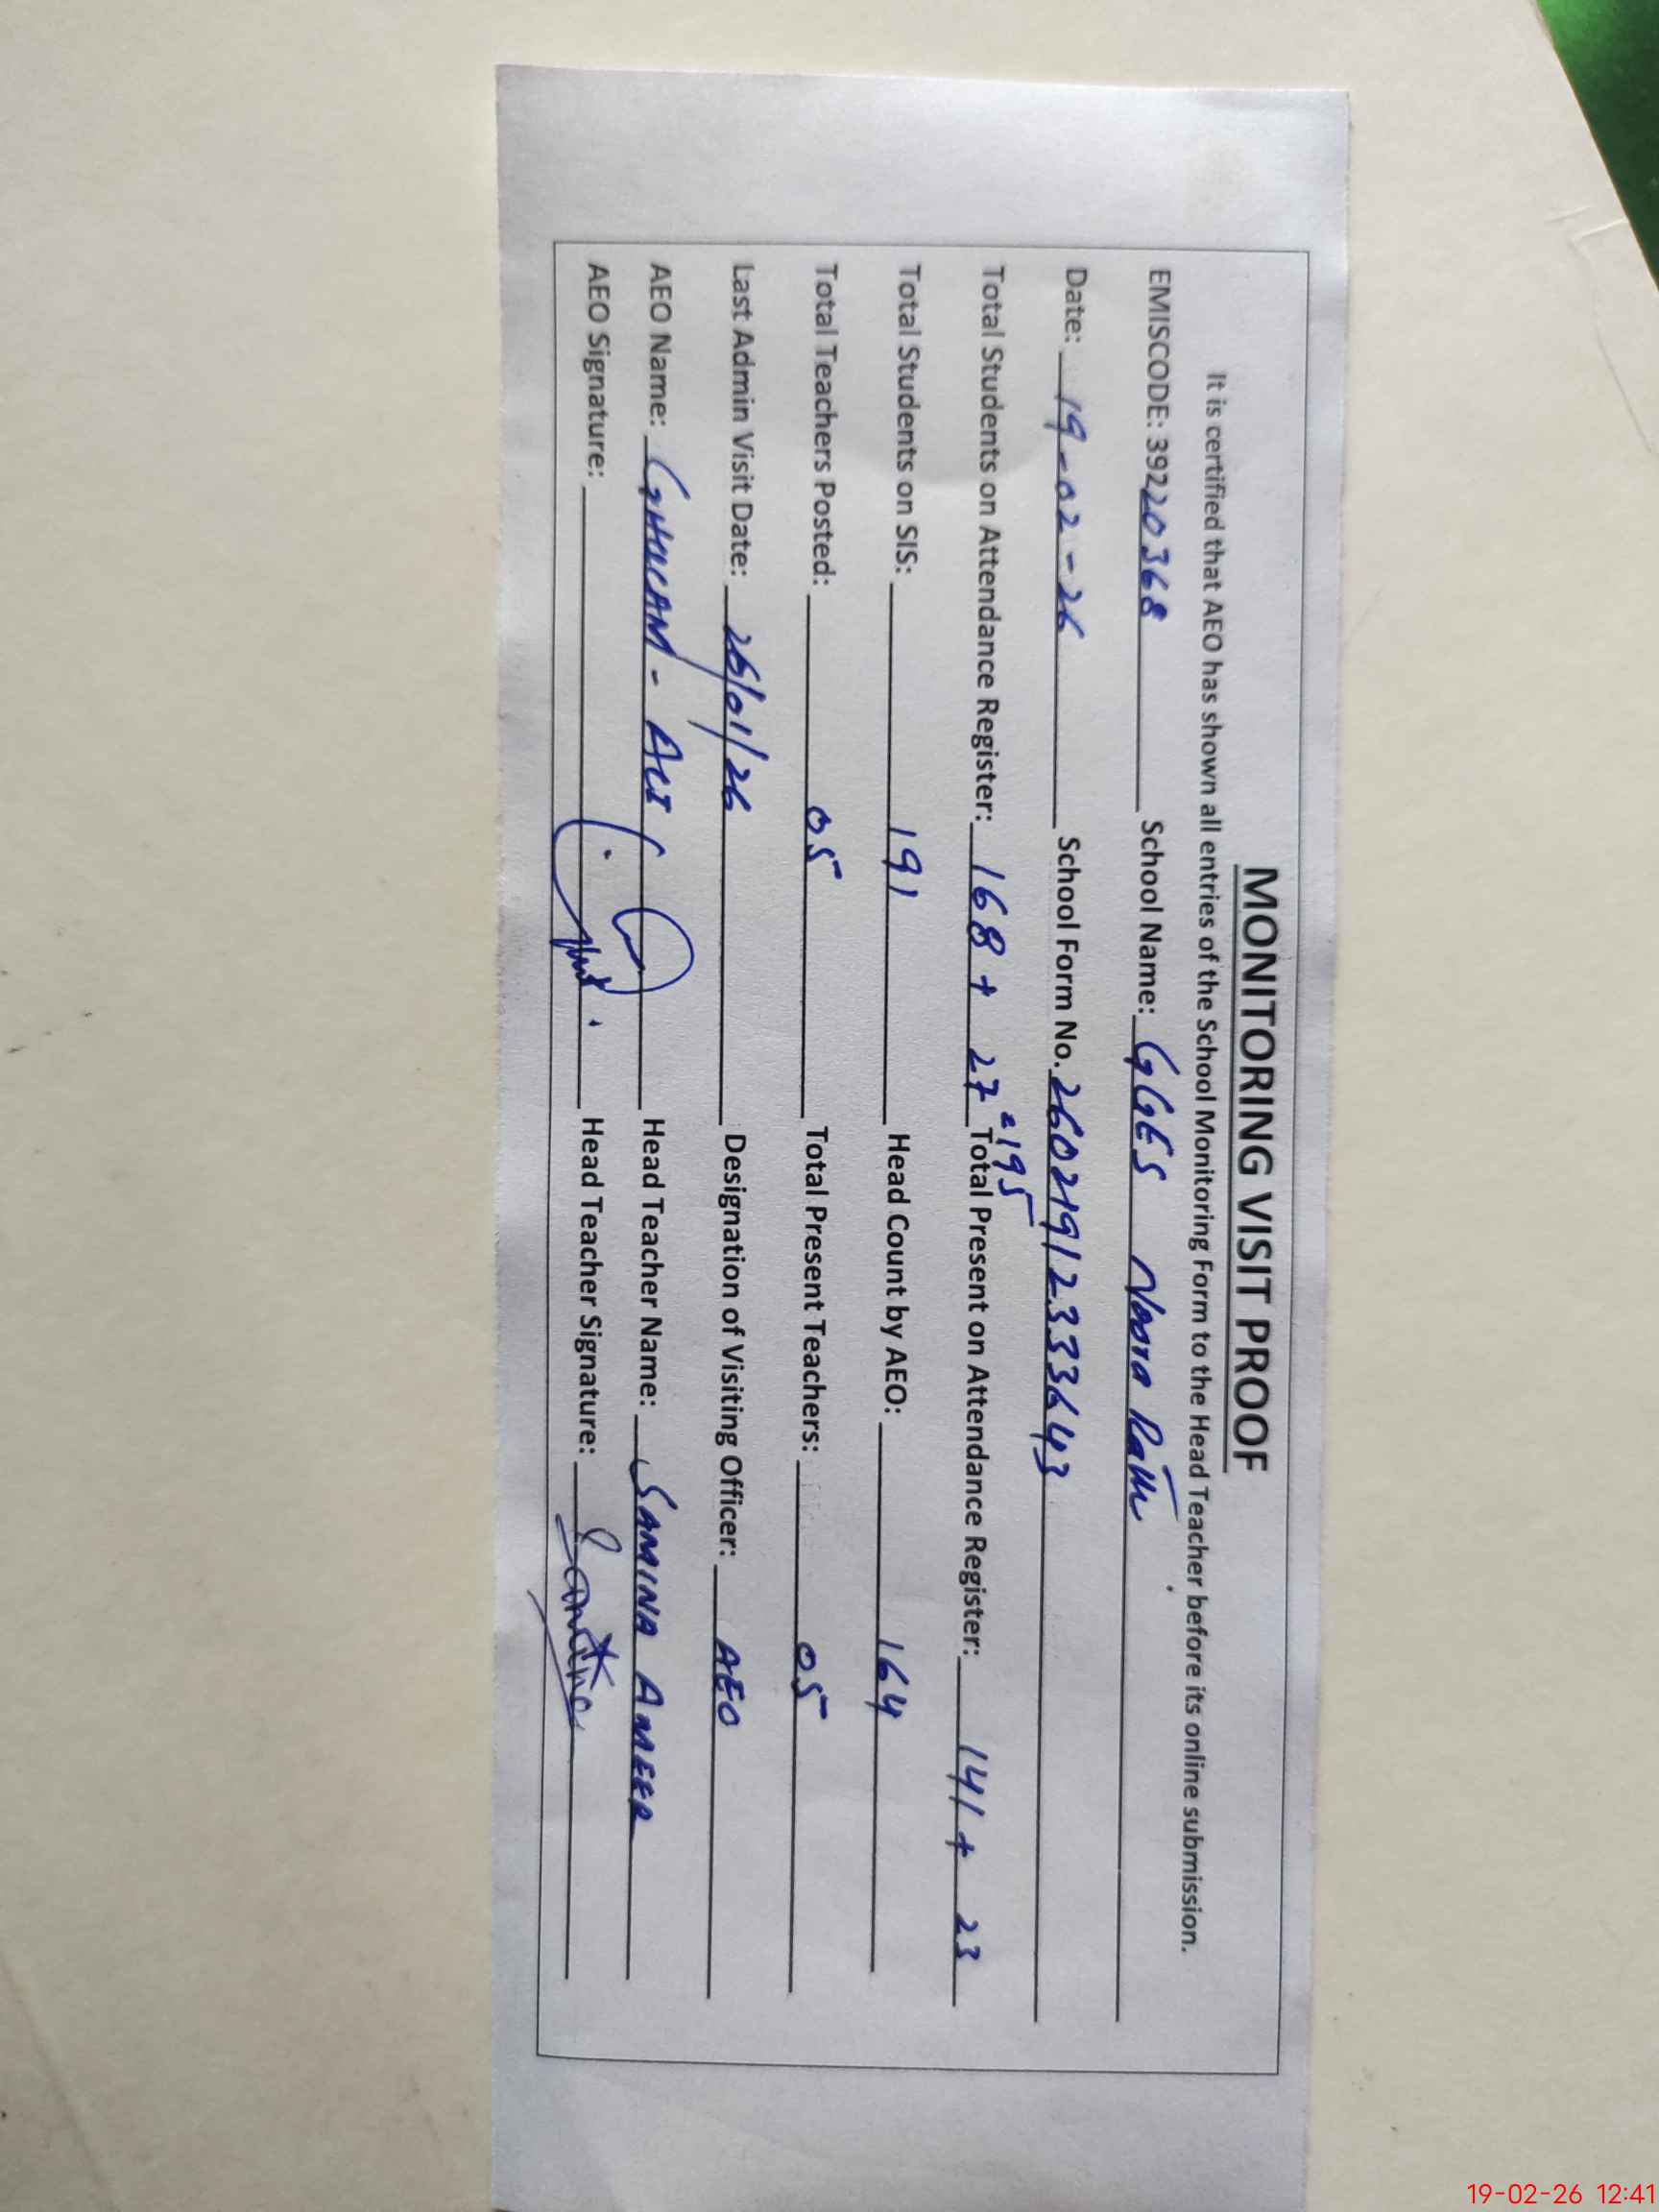 MONITORING VISIT PROOF
It is certified that AEO has shown all entries of the School Monitoring Form to the Head Teacher before its online submission.
EMISCODE: 39220368 School Name: GGES Noora Rath
Date: 19-02-26 School Form No. 260219123333643
Total Students on Attendance Register: 168 + 27 =195 Total Present on Attendance Register: 141 + 23
Total Students on SIS: 191 Head Count by AEO: 164
Total Teachers Posted: 05 Total Present Teachers: 05
Last Admin Visit Date: 26/01/26 Designation of Visiting Officer: AEO
AEO Name: GHULAM - ALI Head Teacher Name: SAMINA AMEER
AEO Signature: Head Teacher Signature: Samina
19-02-26 12:41